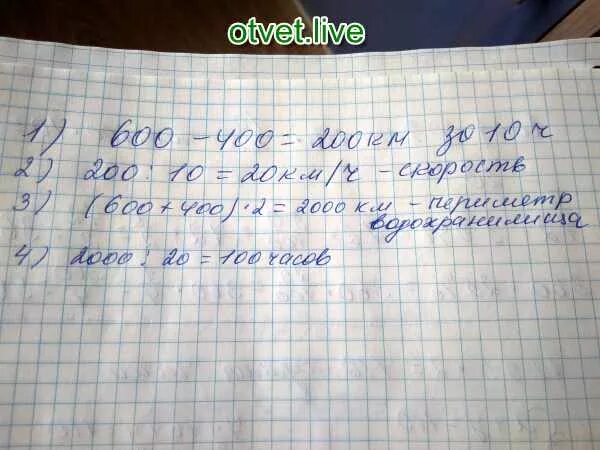 otvet.live
1) 600 - 400 = 200 км за 10 ч
2) 200 : 10 = 20 км/ч - скорость
3) (600 + 400) · 2 = 2000 км - периметр
водохранилища
4) 2000 : 20 = 100 часов